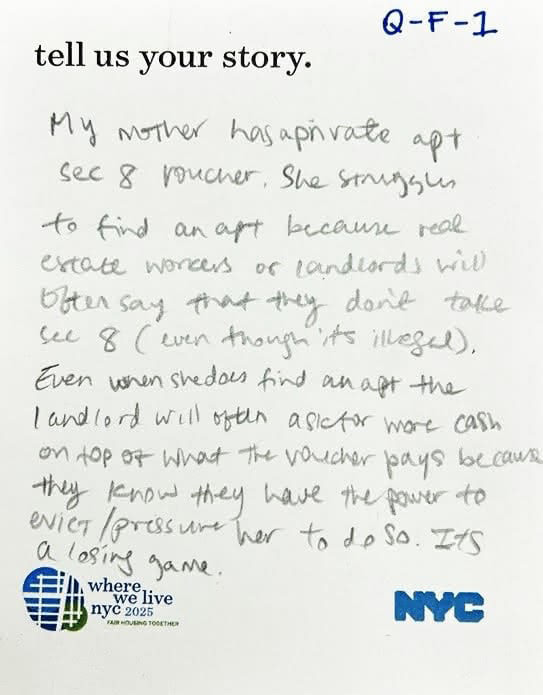 Q-F-1
tell us your story.
My mother has a private apt
sec 8 voucher. She struggles
to find an apt because real
estate workers or landlords will
often say that they don't take
sec 8 (even though its illegal).
Even when she does find an apt the
landlord will often ask for more cash
on top of what the voucher pays because
they know they have the power to
evict/pressure her to do so. Its
a losing game.
where
we live
nyc 2025
FAIR HOUSING TOGETHER
NYC